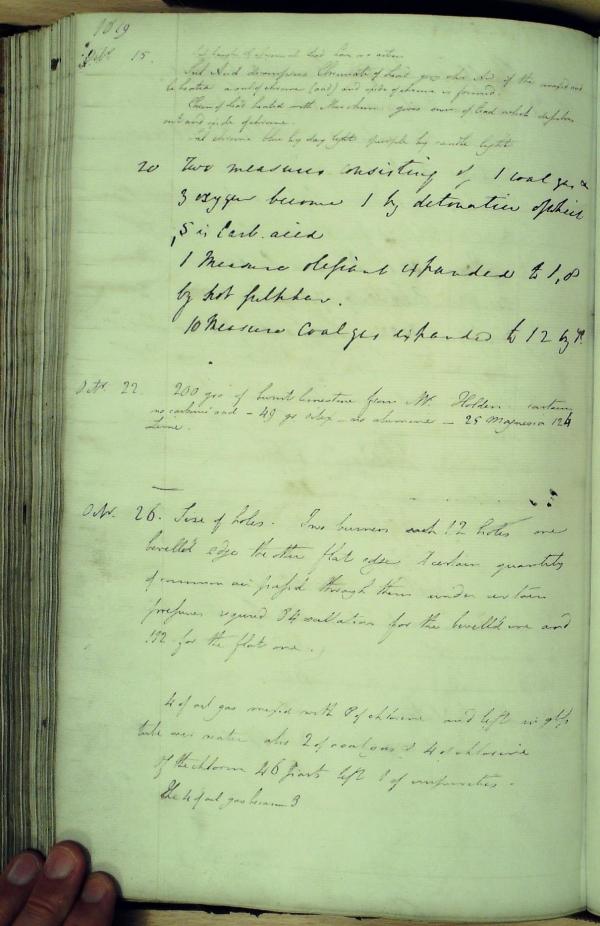 1819
Octr 15. of Lead has no action
Sul Acid decomposes Chromate of Lead if the mixed acid
be heated and oxide of chrome is formed.
Chrom of Lead heated with Mur gives mur of lead which
out and oxide of chrome.
blue by day light purple by candle light
20 Two measures consisting of 1 coal gas &
3 oxygen become 1 by detonation of which
,5 is Carb. acid
1 Measure olefiant expanded to 1,8
by hot sulphur.
10 Measures Coal gas expanded to 12 by Do
Octr. 22 200 grs of burnt limestone from Mr Holden contain
no carbonic acid - 49 grs silex - no alumine - 25 Magnesia 124
Lime.
Octr. 26. Size of holes. Two burners each 12 holes one
bevelld edge the other flat edge. A certain quantity
of common air passd through them under certain
pressures required 84 for the bevelld one and
112 for the flat one.
4 of oil gas mixed with 8 of chlorine and left in glass
tube over water also 2 of coal gas & 4 of chlorine
of the chlorine 46 parts left 1 of impurities.
The 4 of oil gas became 3